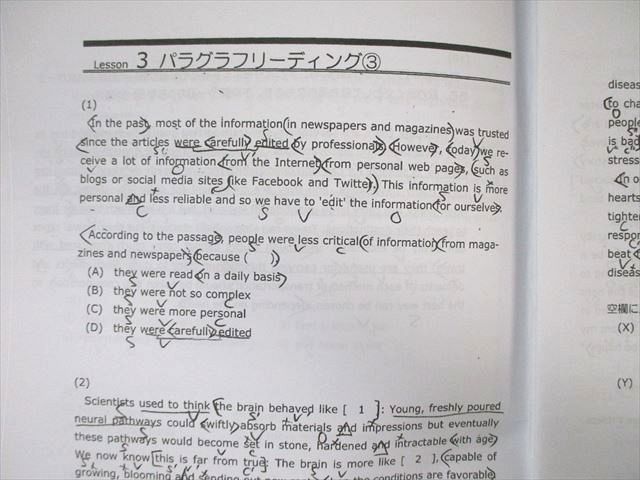 Lesson 3 パラグラフリーディング③
(1)
In the past, most of the information in newspapers and magazines was trusted
since the articles were carefully edited by professionals. However, today we re-
ceive a lot of information from the Internet from personal web pages, such as
blogs or social media sites like Facebook and Twitter. This information is more
personal and less reliable and so we have to 'edit' the information for ourselves.
According to the passage, people were less critical of information from maga-
zines and newspapers because (     )
(A) they were read on a daily basis
(B) they were not so complex
(C) they were more personal
(D) they were carefully edited
(2)
Scientists used to think the brain behaved like [ 1 ]: Young, freshly poured
neural pathways could swiftly absorb materials and impressions but eventually
these pathways would become set in stone, hardened and intractable with age.
We now know this is far from true: The brain is more like [ 2 ], capable of
growing, blooming and sending out new the conditions are favorable
diseas
to cha
people
is bad
stress
In o
hearts
tighter
respor
beat
diseas
空欄に
(X)
(Y)